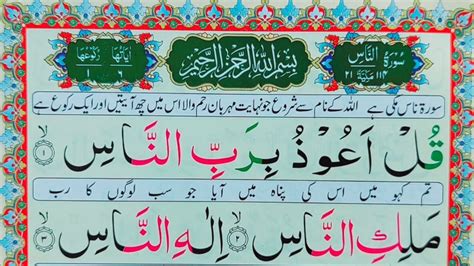 اٰیَاتُهَا ٦ رُکُوْعُهَا ١ بِسْمِ اللّٰهِ الرَّحْمٰنِ الرَّحِیْمِ سُوْرَةُ النَّاسِ ٢١
سورۃ ناس مکی ہے اللہ کے نام سے شروع جو نہایت مہربان رحم والا اس میں چھ آیتیں اور ایک رکوع ہے
قُلْ اَعُوْذُ بِرَبِّ النَّاسِ ١
تم کہو میں اس کی پناہ میں آیا جو سب لوگوں کا رب
مَلِكِ النَّاسِ ٢ اِلٰهِ النَّاسِ ٣